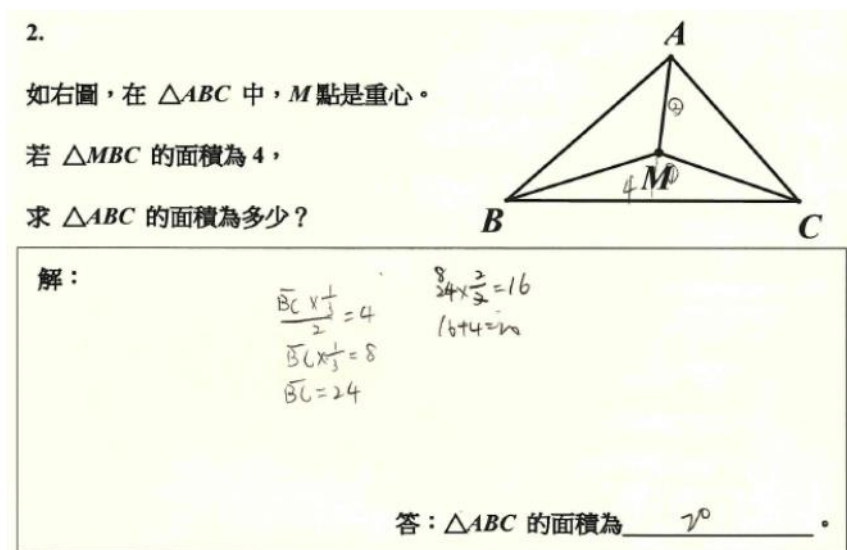 2.
如右圖，在 △ABC 中，M 點是重心。
若 △MBC 的面積為 4，
求 △ABC 的面積為多少？
A
②
4 M ①
B C
解：
B̅C̅ × 1/3 / 2 = 4
B̅C̅ × 1/3 = 8
B̅C̅ = 24
8
24 × 2/3 = 16
16+4=20
答：△ABC 的面積為 20 。